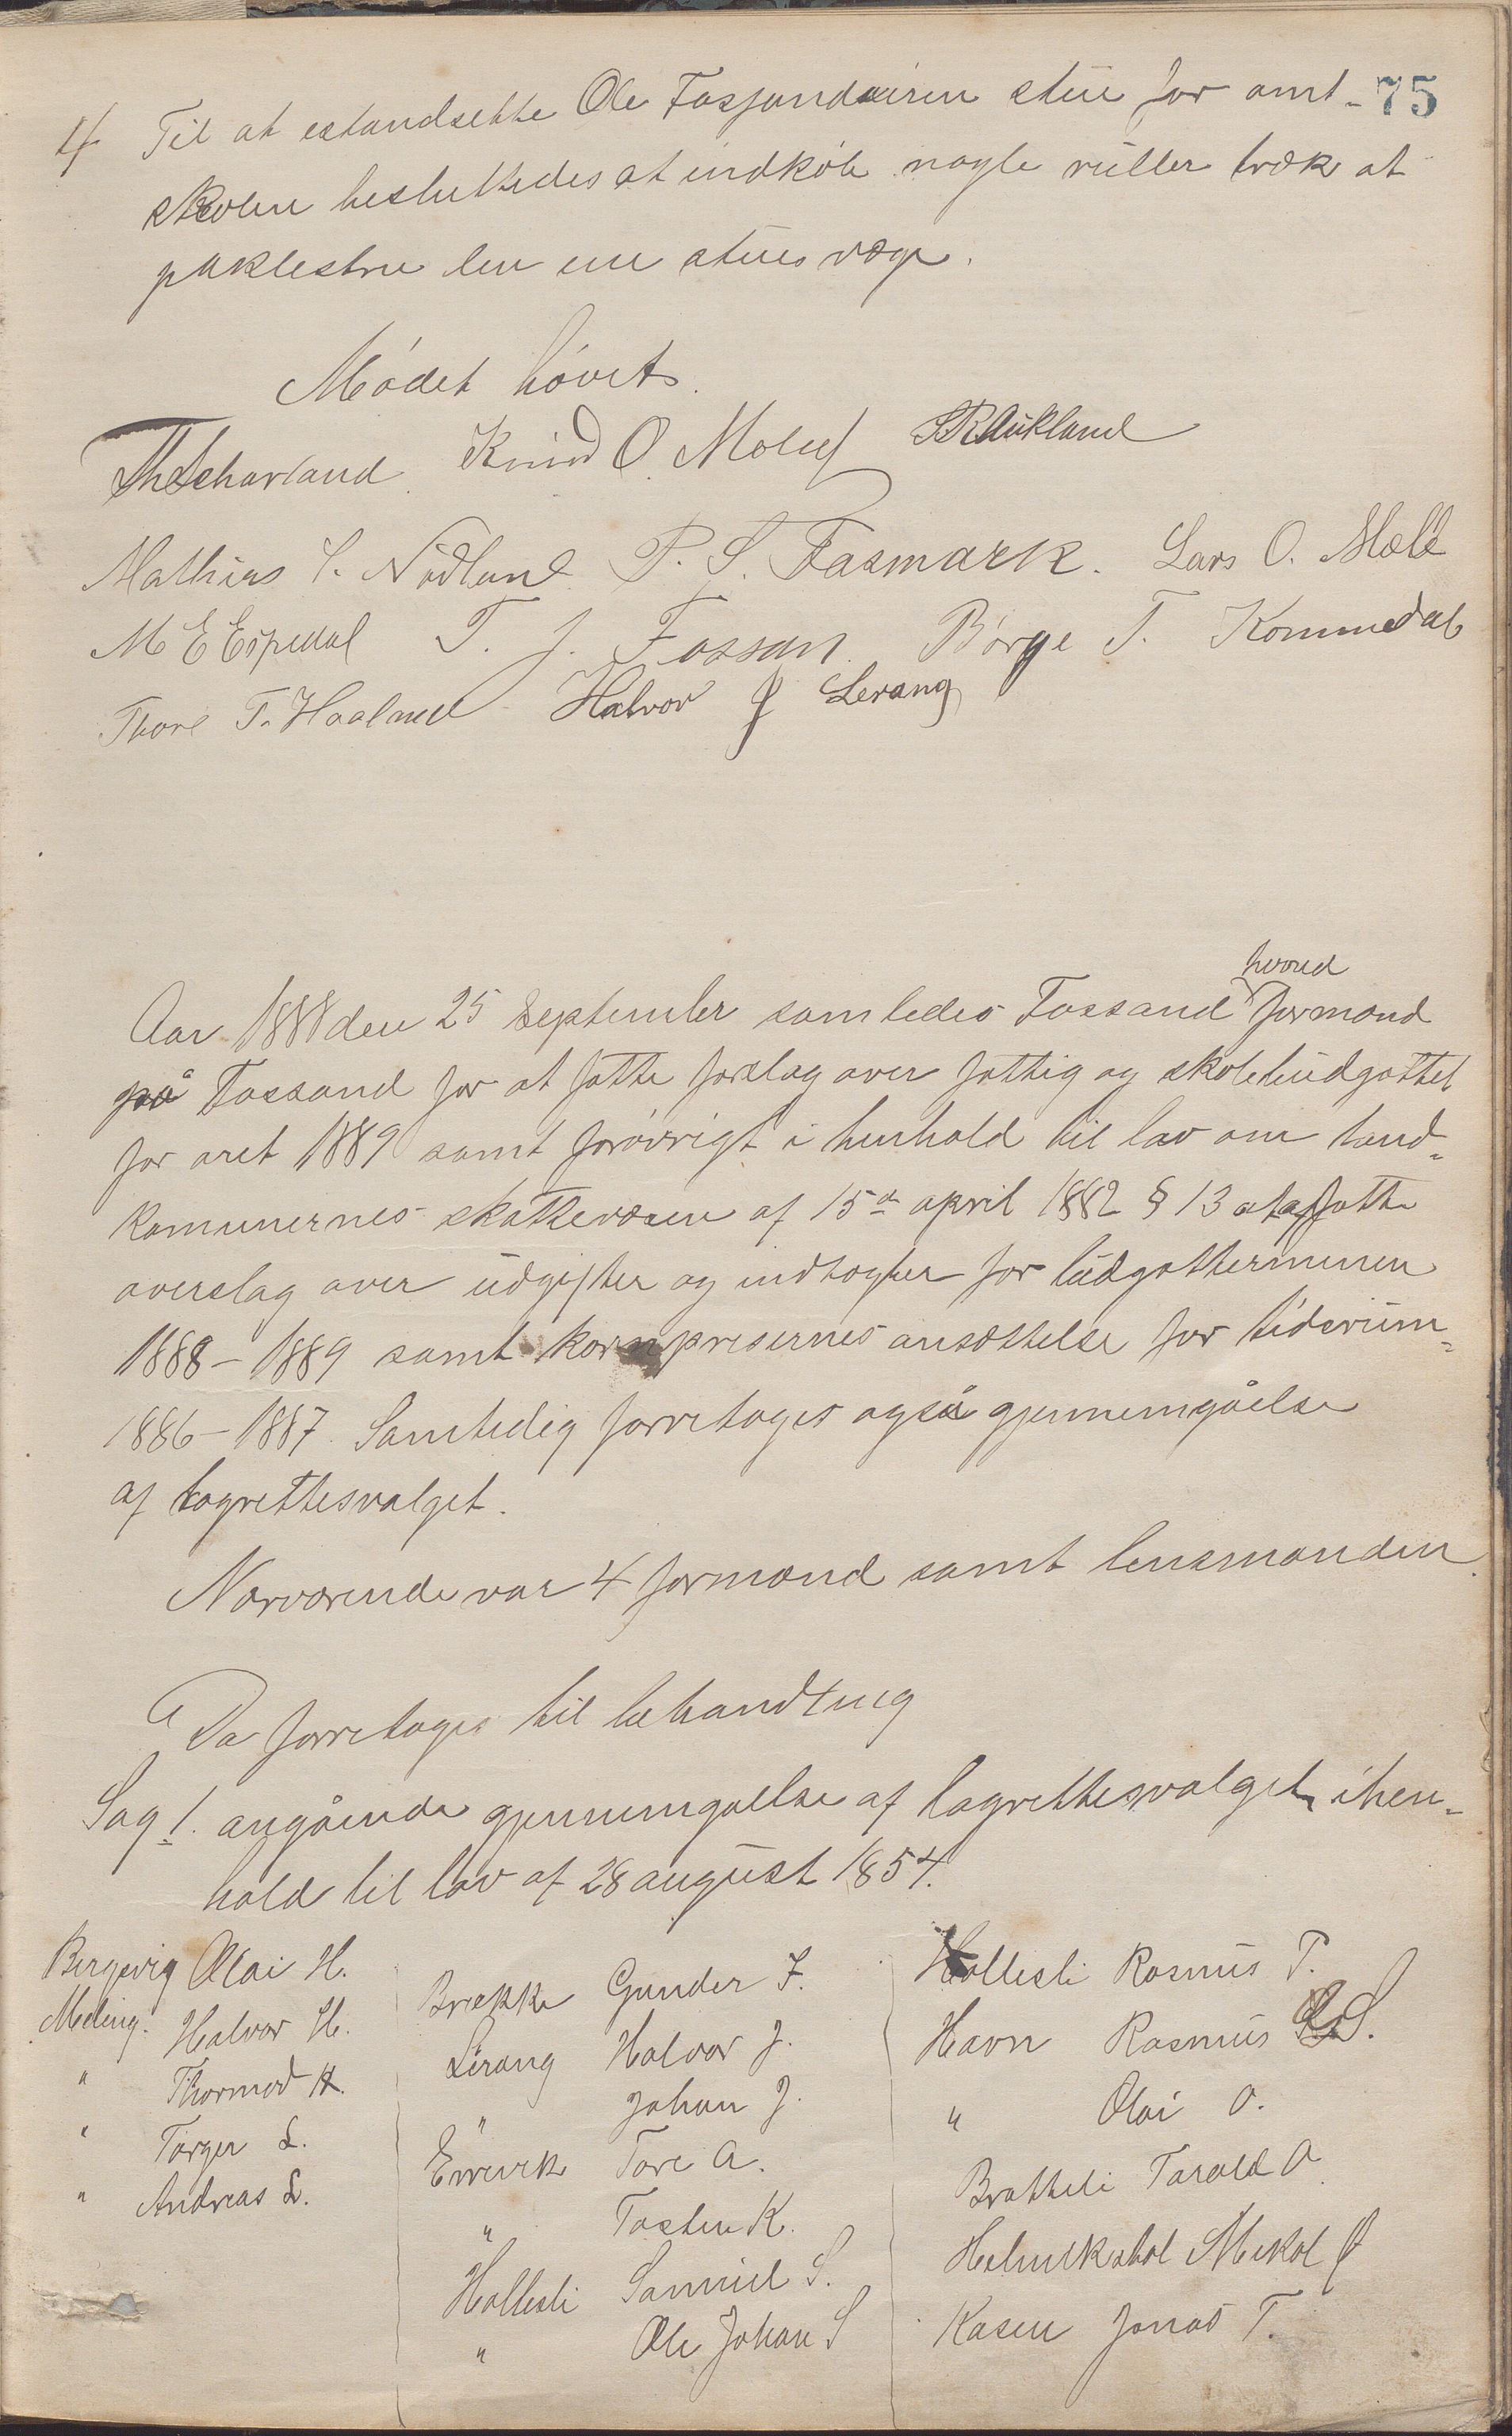 75
4 Til at istandsette Ole Fossandeiren stue for amt-
skolen besluttedes at indköbe nogle ruller træk at
påklistre den ene stues væge.
Mödet hövet.
Th Scharland Knud O. Moluf S R Aukland
Mathias S. Nödland P. S. Fasmark. Lars O. Mæle
M E Espedal T. J. Fossan. Börge T. Kommedal
Thore T. Haaland Halvor J Lerang
Aar 1888 den 25 September samledes Fossand herred formænd
på Fossand for at fatte forslag over fattig og skolebudgettet
for aret 1889 samt forövrigt i henhold til lov om land-
kommunernes skattevæsen af 15de april 1882 § 13 at affatte
overslag over udgifter og indtægter for budgetterminen
1888-1889 samt kornprisernes ansættelse for tidsrum-
1886-1887. Samtidig foretoges også gjennemgåelse
af lagrettesvalget.
Nærværende var 4 formænd samt lensmanden.
Da foretoges til behandling
Sag 1. angående gjennemgåelse af lagrettesvalget, i hen-
hold til lov af 28 august 1854.
Bergevig Olai H.
Meling. Halvor H.
" Thormod H.
" Torger L.
" Andreas L.
Brække Gunder F.
Lerang Halvor J.
" Johan J.
Eirevik Tore A.
" Tosten K.
Hollesli Samuel S.
" Ole Johan S
Hollesli Rasmus P.
Havn Rasmus S.
" Olai O.
Bratteli Tarald O
Helmikstøl Mikal O
Kasen Jonas T.